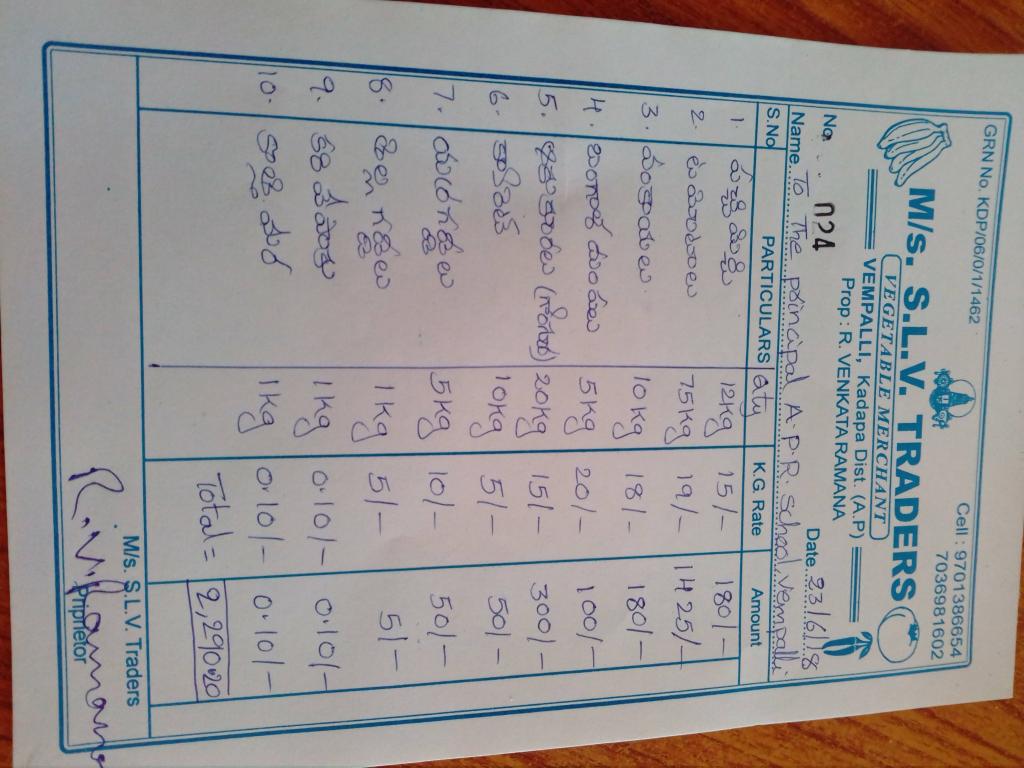 GRN No. KDP/06/0/1/1462
Cell : 9701386654
7036981602
M/s. S.L.V. TRADERS
VEGETABLE MERCHANT
VEMPALLI, Kadapa Dist. (A.P)
Prop : R. VENKATARAMANA
No. 024 Date 23/6/18
Name To The principal A.P.R. School Vempalli.
S.No PARTICULARS Qty K.G. Rate Amount
1. పచ్చి మిర్చి 12kg 15/- 180/-
2. టమోటాలు 75kg 19/- 1425/-
3. వంకాయలు 10kg 18/- 180/-
4. బంగాళ దుంపలు 5kg 20/- 100/-
5. 20kg 15/- 300/-
6. క్యారెట్ 10kg 5/- 50/-
7. 5kg 10/- 50/-
8. 1kg 5/- 5/-
9. కరివేపాకు 1kg 0.10/- 0.10/-
10. 1kg 0.10/- 0.10/-
Total = 2,290.20
M/s. S.L.V. Traders
R.V. Ramana
Priprietor